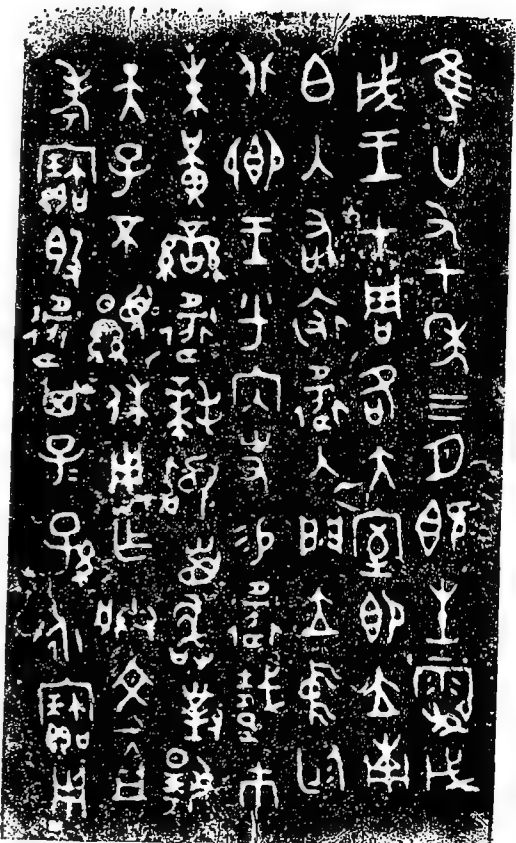 隹廿又七年三月既生霸戊
戌王才周各大室即立南
白入右裘衛入門立中廷北
鄉王乎內史易衛巿
朱黃䜌衛拜𩒨首敢對揚
天子不顯休用乍朕文且
考寶𣪘衛其子子孫孫永寶用